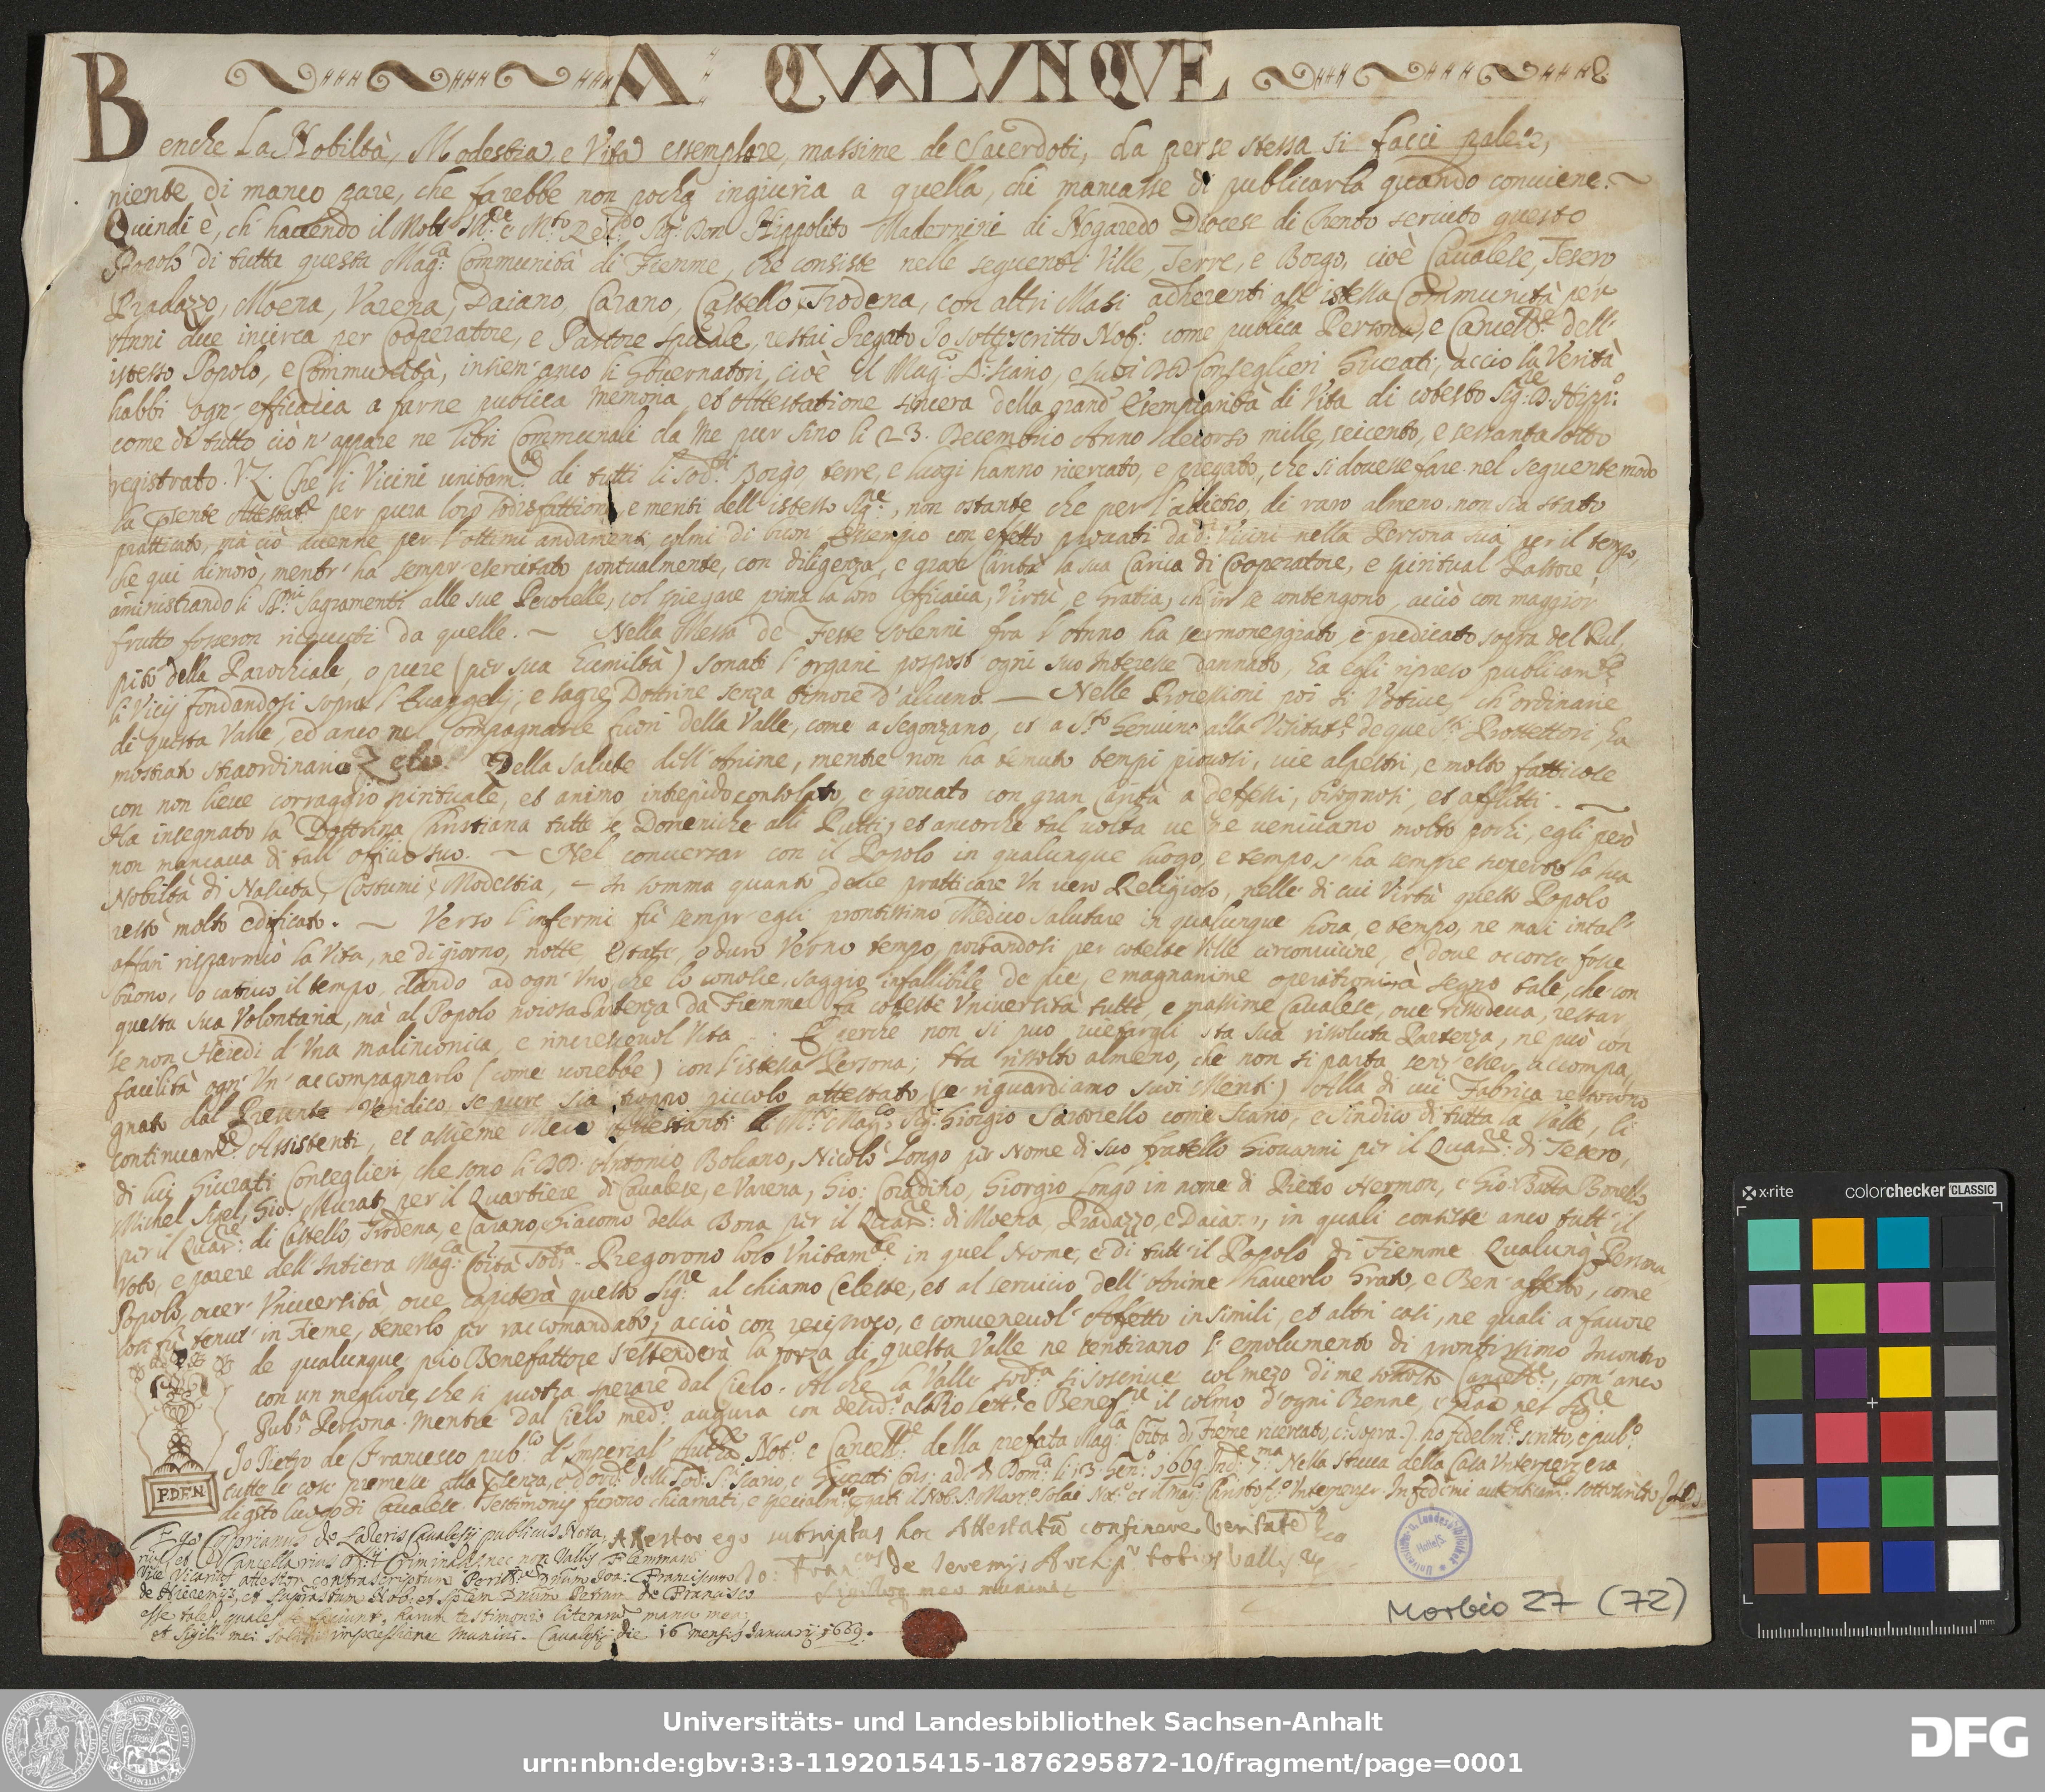 A QUALUNQUE
Benche La Nobiltà, Modestia, e Vita essemplare, massime de Sacerdoti, da per se stessa si facci palese,
niente di manco pare, che farebbe non pocha ingiuria a quella, chi mancasse di publicarla quando conuiene. ~
Quindi è, ch' hauendo il Molt' Ill.re e M.to Re.do Sig.r Don Hippolito Madernini di Nogaredo Diocese di Trento seruito questo
Popolo di tutta questa Mag.ca Communità di Fiemme, che consiste nelle seguenti Ville, Terre, e Borgo, cioè Caualese, Tesero
Pradazzo, Moena, Varena, Daiano, Carano, Castello, Trodena, con altri Masi adherenti all' istessa Communità per
Anni due incirca per Cooperatore, e Pastore spirituale, restai Pregato Io sottoscritto Not.o come publica Persona, e Cancell.re dell'
istesso Popolo, e Communità, insiem' anco li Gouernatori, cioè il Mag.co D: Scario, e suoi DD Conseglieri Giurati, accio la Verità
habbi ogn' efficacia a farne publica memoria, et Attestatione sincera della grand' Esemplarità di Vita di cotesto Sig.re D. Hipp.o
come di tutto ciò n' appare ne libri Communali da me pur sino li 23. Decembrio Anno decorso mille, seicento, e sessanta otto
registrato. V.Z. Che li Vicini unitam.te di tutti li sod.ti Borgo, terre, e luogi hanno ricercato, e pregato, che si douesse fare nel seguente modo
la presente Attestat.e per pura loro sodisfattione, e meriti dell' istesso Sig.re, non ostante che per l' adietro, di raro almeno, non sia stato
pratticato, mà ciò auenne per l' ottimi andamenti, colmi di buon Essempio con effetto prouati da d.i Vicini nella Persona sua per il tempo,
che qui dimorò, mentr' ha sempr' esercitato pontualmente, con diligenza, e gran Carità la sua Carica di Cooperatore, e spiritual Pastore,
aministrando li SS.mi Sagramenti alle sue Pecorelle, col spiegare prima la loro Efficacia, Virtù, e Gratia, ch' in se contengono, acciò con maggior
frutto fosseron riceuuti da quelle. ~ Nella Messa de Feste solenni fra l' Anno ha sermoneggiato, e predicato sopra del Pul,
pito della Parochiale, o pure (per sua humiltà) sonati l' organi posposto ogni suo Interesse dannato, ha egli ripreso publicam.te
li Vicij fondandosi sopra l' Euangelij, e sagre Dottrine senza timore d' alcuno. — Nelle Processioni poi si Votiue, ch' ordinarie
di questa Valle, ed anco nel Compagnarle fuori della Valle, come a Segonzano, et a S.to Genuino alla Visitat.e de que S.ti Prottettori, ha
mostrato straordinario Zelo. Della salute dell' Anime, mentre non ha temuto tempi piouosi, uie alpestri, e molto fatticose
con non lieue corraggio spirituale, et animo intrepido consolato, e giouato con gran Carità a defessi, bisognosi, et afflitti. ~
Ha insegnato la Dottrina Christiana tutte le Domeniche alli Putti, et ancorche tal uolta ue ne ueniuano molto pochi, egli però
non mancaua di tall' officio suo. ~ Nel conuersar con il Popolo in qualunque luogo, e tempo, s' ha sempre scoperto la sua
Nobiltà di Nascita, Costumi, e Modestia, — In somma quanto deue pratticare Un uero Religioso, nelle di cui Virtù questo Popolo
restò molto edificato. ~ Verso l' infermi fù sempr' egli prontissimo Medico Salutare in qualunque hora, e tempo, ne mai in tal'
affari risparmiò la Vita, ne di giorno, notte, Estate, o duro Verno tempo portandosi per coteste Ville circonuicine, e doue occorse fosse
buono, o catiuo il tempo, dando ad ogn' Uno, che lo conosce, saggio infallibile de pie, e magnanime operationi à segno tale, che con
questa sua Volontaria, mà al Popolo noiosa Partenza da Fiemme fa coteste Uniuersità tutte, e massime Caualese, oue rissedeua, restar
se non Heredi d' Una malinconica, e rincresceuol Vita. E perche non si puo uietargli sta sua rissoluta Partenza, ne può con
facilità ogn' Un' accompagnarlo (come uorebbe) con l' istessa Persona; Ha rissolto almeno, che non si parta senz' esser accompa,
gnato dal Presente Veridico, se pure sia troppo piccolo attestato (se riguardiamo suoi Meriti) Alla di cui Fabrica restorono
continuam.te Assistenti, et assieme Meco Attestanti il M.to Mag.co Sig.r Giorgio Sartorello come Scario, e Sindico di tutta la Valle, li
di lui Giurati Conseglieri, che sono li DD. Antonio Bolcano, Nicolò Longo per Nome di suo fratello Giouanni per il Quar.re di Tesero,
Michel Sigel, Gio: Murat per il Quartiere di Caualese, e Varena, Gio: Coradino, Giorgio Longo in nome di Pietro Hermon, e Gio: Batta Bonello
per il Quar.re di Castello, Trodena, e Carano, Giacomo della Bona per il Quar.re di Moena, Pradazzo, e Daiano, in quali consiste anco tutt' il
Voto, e parere dell' Intiera Mag.ca Co.ità Sod.a - Pregorono loro Unitam.te in quel Nome, e di tutt' il Popolo di Fiemme Qualunq' Persona
Popolo, ouer' Uniuersità, oue capiterà questo Sig.re al chiamo Celeste, et al seruicio dell' Anime hauerlo Grato, e Ben' affetto, come
lor fù tenut' in Fieme, tenerlo per raccomandato, acciò con reciproco, e conueneuol' Affetto in simili, et altri casi, ne quali a fauore
de qualunque pio Benefattore s' estenderà la forza di questa Valle ne sentirano l' emolumento di prontissimo Incontro
con un megliore, che si potrà sperare dal Cielo. Al che la Valle sod.a si soscriue col mezo di me sottosto Cancell.re, com' anco
Pub.a Persona. Mentre dal Cielo med.o augura con
Io Pietro de Francesco pub.co d' Imperial' Auth.à Not.o e Cancell.re della prefata Mag.ca Co.ità di Fieme ricercato, (c: sopra.) ho fedelm.te scritto, e pub.o
P.D.F.N.
di q.sto Luogo di Caualese. Testimonij furono chiamati, e specialm.te
Ego Cyprianus de Laderis Cavalesij publicus Nota,
rius, et Cancellarius offitij Criminalis, nec non Vallis Flemmarum
Vice Vicarius attestor contrascriptum Joa: Franciscum
de Hieremijs, et supra.stum Nob: et Petrum de Francisco
esse tales, quales se faciunt, harum testimonio literarum manu mea,
et Sigili mei soliti impressione muniui. Cavalesij die 16 mensis Januarij 1669.
Attestor ego subscriptus hoc Attestatum continere veritatem
Jo: Fran.cus de Jeremijs Arch.pr totius Vallis
Sigilloque meo muniui
Morbio 27 (72)
x-rite
colorchecker CLASSIC
mm
Universitäts- und Landesbibliothek Sachsen-Anhalt
urn:nbn:de:gbv:3:3-1192015415-1876295872-10/fragment/page=0001
DFG